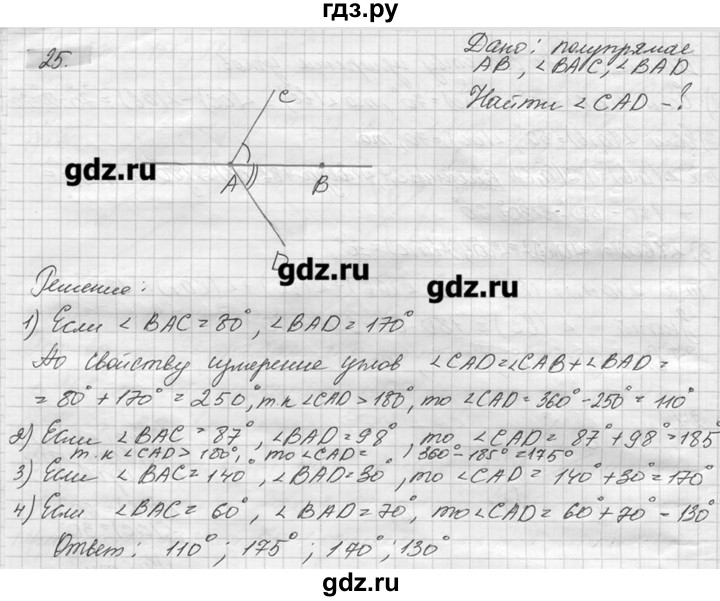 гдз.ру
25.
Дано: полупрямые
AB, ∠BAC, ∠BAD
Найти ∠CAD - ?
C
gdz.ru
A
B
D
gdz.ru
gdz.ru
Решение:
1) Если ∠BAC = 80°, ∠BAD = 170°
По свойству измерение углов ∠CAD = ∠CAB + ∠BAD =
= 80° + 170° = 250°, т.к ∠CAD > 180°, то ∠CAD = 360° - 250° = 110°
2) Если ∠BAC = 87°, ∠BAD = 98°, то ∠CAD = 87° + 98° = 185°
т.к ∠CAD > 180°, то ∠CAD = 360° - 185° = 175°
3) Если ∠BAC = 140°, ∠BAD = 30°, то ∠CAD = 140° + 30° = 170°
4) Если ∠BAC = 60°, ∠BAD = 70°, то ∠CAD = 60° + 70° - 130°
Ответ: 110°; 175°; 170°; 130°
gdz.ru